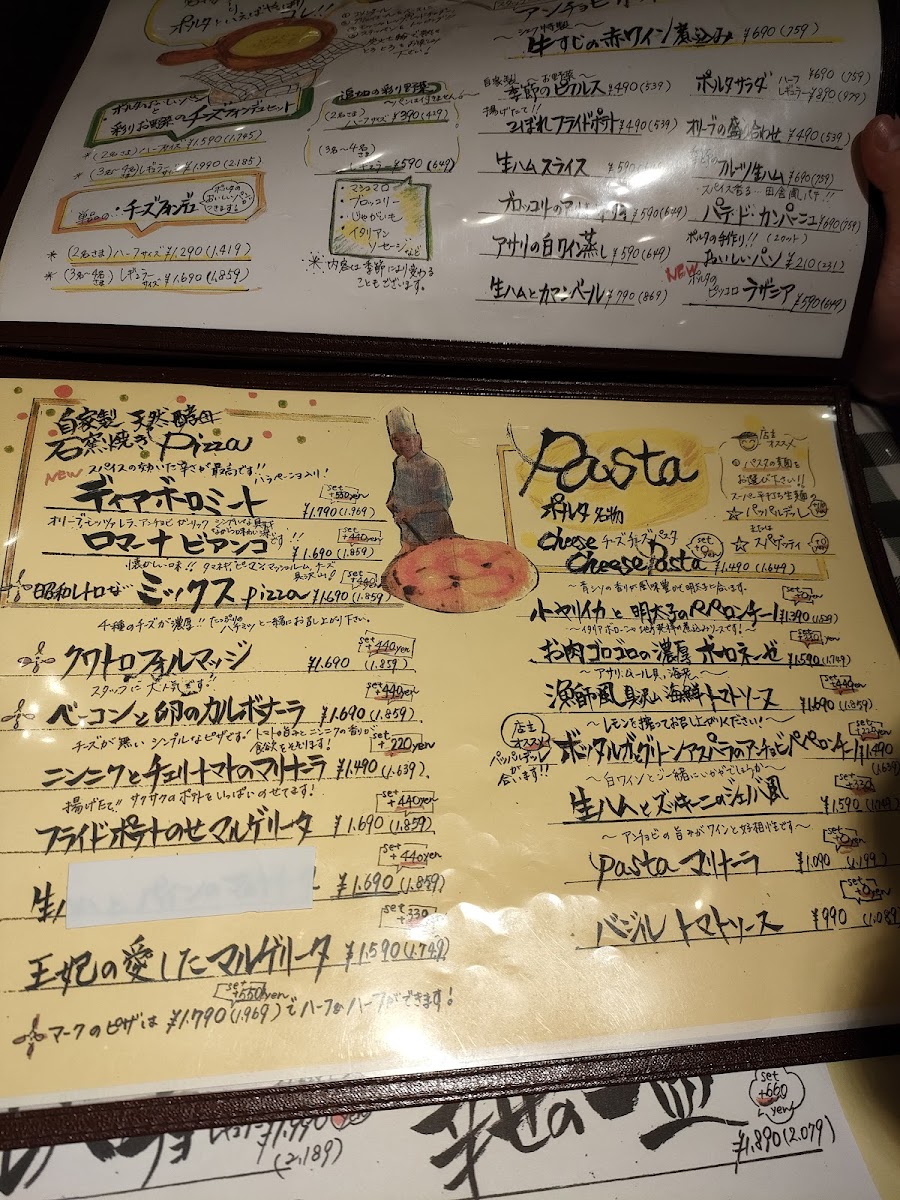 ポルタといえばやっぱり
コレ!!
・ポルタおいしいパン
彩りお野菜のチーズフォンデュセット
*(2名さま)ハーフサイズ ¥1,590(1,745)
*(3名〜4名さま)レギュラーサイズ ¥1,990(2,185)
単品の・・チーズフォンデュ
*(2名さま)ハーフサイズ ¥1,290(1,419)
*(3名〜4名さま)レギュラーサイズ ¥1,690(1,859)
追加の彩り野菜
(2名さま)
ハーフサイズ ¥390(429)
(3名〜4名さま)
¥590(649)
・マシュマロ
・ブロッコリー
・じゃがいも
・イタリアン
ソーセージ など
※内容は季節により変わる
こともございます。
〜シェフ特製〜
牛すじの赤ワイン煮込み ¥690(759)
自家製 〜お野菜〜
季節のピクルス ¥490(539)
揚げたて!!
こぼれフライドポテト ¥490(539)
生ハムスライス ¥590
¥590(649)
アサリの白ワイン蒸し ¥590(649)
生ハムとカマンベール ¥790(869)
ポルタサラダ ハーフ ¥690(759)
レギュラー ¥890(979)
オリーブの盛り合わせ ¥490(539)
フルーツ生ハム ¥690(759)
スパイス香る…田舎風パテ!!
パテ・ド・カンパーニュ ¥690(759)
ポルタの手作り!! (2カット)
おいしいパン ¥210(231)
NEW
ポルタの
ピッコロ ラザニア ¥590(649)
自家製 天然酵母
石窯焼き Pizza
NEW
スパイスの効いた辛さが最高です!! ハラペーニョ入り!
ディアボロミート set +550yen ¥1,790(1,969)
オリーブ、モッツァレラ、アンチョビ、ガーリック
ロマーナ ビアンコ set +440yen ¥1,690(1,859)
懐かしい味!! タマネギ、ピーマン、マッシュルーム、チーズ
昭和レトロな ミックス pizza set +440 ¥1,690(1,859)
4種のチーズが濃厚!! たっぷりのハチミツと一緒にお召し上がり下さい。
クワトロフォルマッジ set +440yen ¥1,690(1,859)
スタッフに大人気です!!
ベーコンと卵のカルボナーラ set +440yen ¥1,690(1,859)
チーズが無いシンプルなピザです! トマトの旨みとニンニクの香りが
食欲をそそります!
ニンニクとチェリートマトのマリナーラ set +220yen ¥1,490(1,639)
揚げたて!! サクサクのポテトをいっぱいのせてます!
フライドポテトのせマルゲリータ set +440yen ¥1,690(1,859)
生 set +440yen ¥1,690(1,859)
王妃の愛したマルゲリータ set +330 ¥1,590(1,749)
マークのピザは ¥1,790(1,969) set +550yen でハーフ&ハーフができます!
Pasta
店主オススメ
パスタの麺を
お選び下さい!!
スーパー平打ち生麺
☆ パッパルデッレ
または
☆ スパゲッティ
ポルタ名物
cheese チーズチーズパスタ
cheese Pasta set +0yen ¥1,490(1,649)
〜青シソの香りが風味豊かで明太子に合います。
小ヤリイカと明太子のペペロンチーノ ¥1,390(1,529)
お肉ゴロゴロの濃厚 ボロネーゼ ¥1,590(1,749)
〜アサリ、ムール貝、海老〜
漁師風 具沢山海鮮トマトソース ¥1,690(1,859)
〜レモンを搾ってお召し上がりください!〜
店主オススメ
パッパルデッレが
合います!!
ボッタルガとグリーンアスパラのアンチョビペペロンチーノ set +220 ¥1,490(1,639)
〜白ワインとご一緒にいかがでしょうか〜
生ハムとズッキーニのジェノバ風 set +330 ¥1,590(1,749)
〜アンチョビの旨みがワインと好相性です〜
pasta マリナーラ set +0yen ¥1,090(1,199)
バジル トマトソース set +0yen ¥990(1,089)
(2,189)
幸せの一皿
set +660yen
¥1,890(2,079)